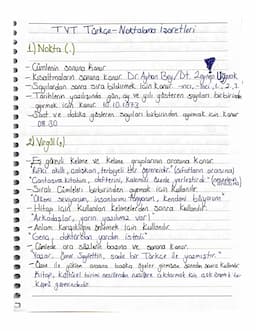 TYT Türkçe-Noktalama İşaretleri
1) Nokta (.)
- Cümlenin sonuna konur.
- Kısaltmaların sonuna konur. Dr. Ayhan Bey / Dt. Zeynep
- Sayılardan sonra sıra bildirmek için konur -ıncı, -inci, 1., 2.,
- Tarihlerin yazılışında gün, ay ve yılı gösteren sayıları birbirinden
ayırmak için konur. 10.1973
- Saat ve dakika gösteren sayıları birbirinden ayırmak için konur.
08.30
2) Virgül (,)
- Eş görevli kelime ve kelime gruplarının arasına konur.
"Akıllı, çalışkan, terbiyeli bir öğrencidir." (sıfatların arasına)
"Çantasına kitabını, defterini, kalemini özenle yerleştirdi."
- Sıralı Cümleleri birbirinden ayırmak için Kullanılır.
"Ülkemi seviyorum, insanlarımı tanıyorum, kendimi biliyorum"
- Hitap için Kullanılan Kelimelerden sonra Kullanılır.
"Arkadaşlar, yarın yazılımız var!"
- Anlam Karışıklığını önlemek için Kullanılır.
"Genç, doktordan yardım istedi"
- Cümlede ara sözlerin başına ve sonuna konur.
"Yazar, Ömer Seyfettin, sade bir Türkçe ile yazmıştır."
- Özne ile yüklem arasına başka ögeler girmişse özneden sonra Kullanılır.